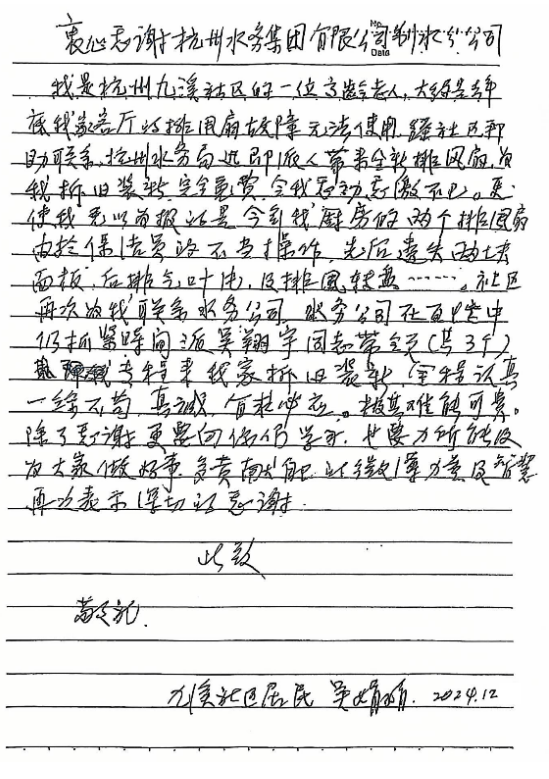 衷心感谢杭州水务集团有限公司制水分公司
No
Date
我是杭州九溪社区的一位高龄老人,大约是去年
底我家客厅的排风扇故障无法使用,经社区帮
助联系,杭州水务局迅即派人带来全新排风扇,为
我拆旧装新,完全免费,令我感动感激不已。更
使我无以为报的是今年我厨房的两个排风扇
由于保洁员的不当操作,先后遗失两块
面板,后排气叶片,及排风转盘……。社区
再次为我联系水务公司,水务公司在百忙中
仍抓紧时间派吴翔宇同志带全(共3个)
专程来我家拆旧装新,全程认真
一丝不苟,真诚,有求必应。极其难能可贵。
除了感谢更要向你们学习,也要力所能及
为大家做好事,多贡献自己的微薄力量及智慧
再次表示深切的感谢
此致
敬礼.
九溪社区居民 吴 2024.12